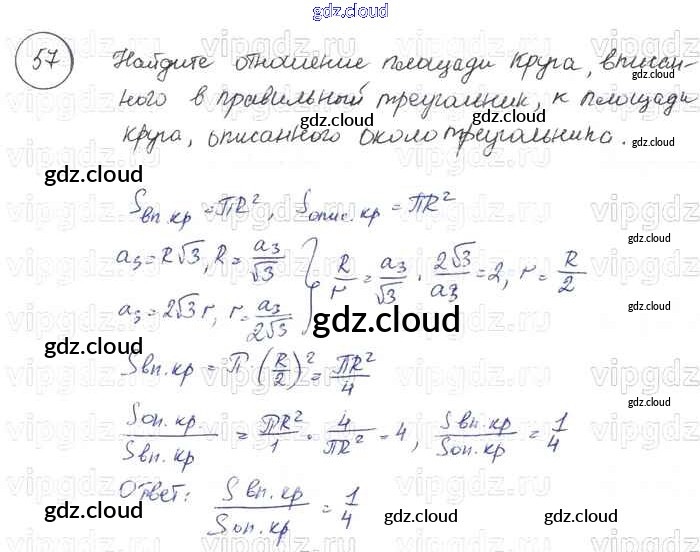 gdz.cloud
57 Найдите отношение площади круга, вписан-
ного в правильный треугольник, к площади
круга, описанного около треугольника.
gdz.cloud
gdz.cloud
gdz.cloud
gdz.cloud
Sвп.кр = πR², Sопис.кр = πR²
a₃ = R√3, R = a₃/√3
a₃ = 2√3 r, r = a₃/2√3
} R/r = a₃/√3 · 2√3/a₃ = 2, r = R/2
gdz.cloud
gdz.cloud
gdz.cloud
Sвп.кр = π (R/2)² = πR²/4
gdz.cloud
Sоп.кр./Sвп.кр = πR²/1 · 4/πR² = 4, Sвп.кр/Sоп.кр = 1/4
gdz.cloud
Ответ: Sвп.кр/Sоп.кр = 1/4
gdz.cloud
gdz.cloud
gdz.cloud
vipgdz